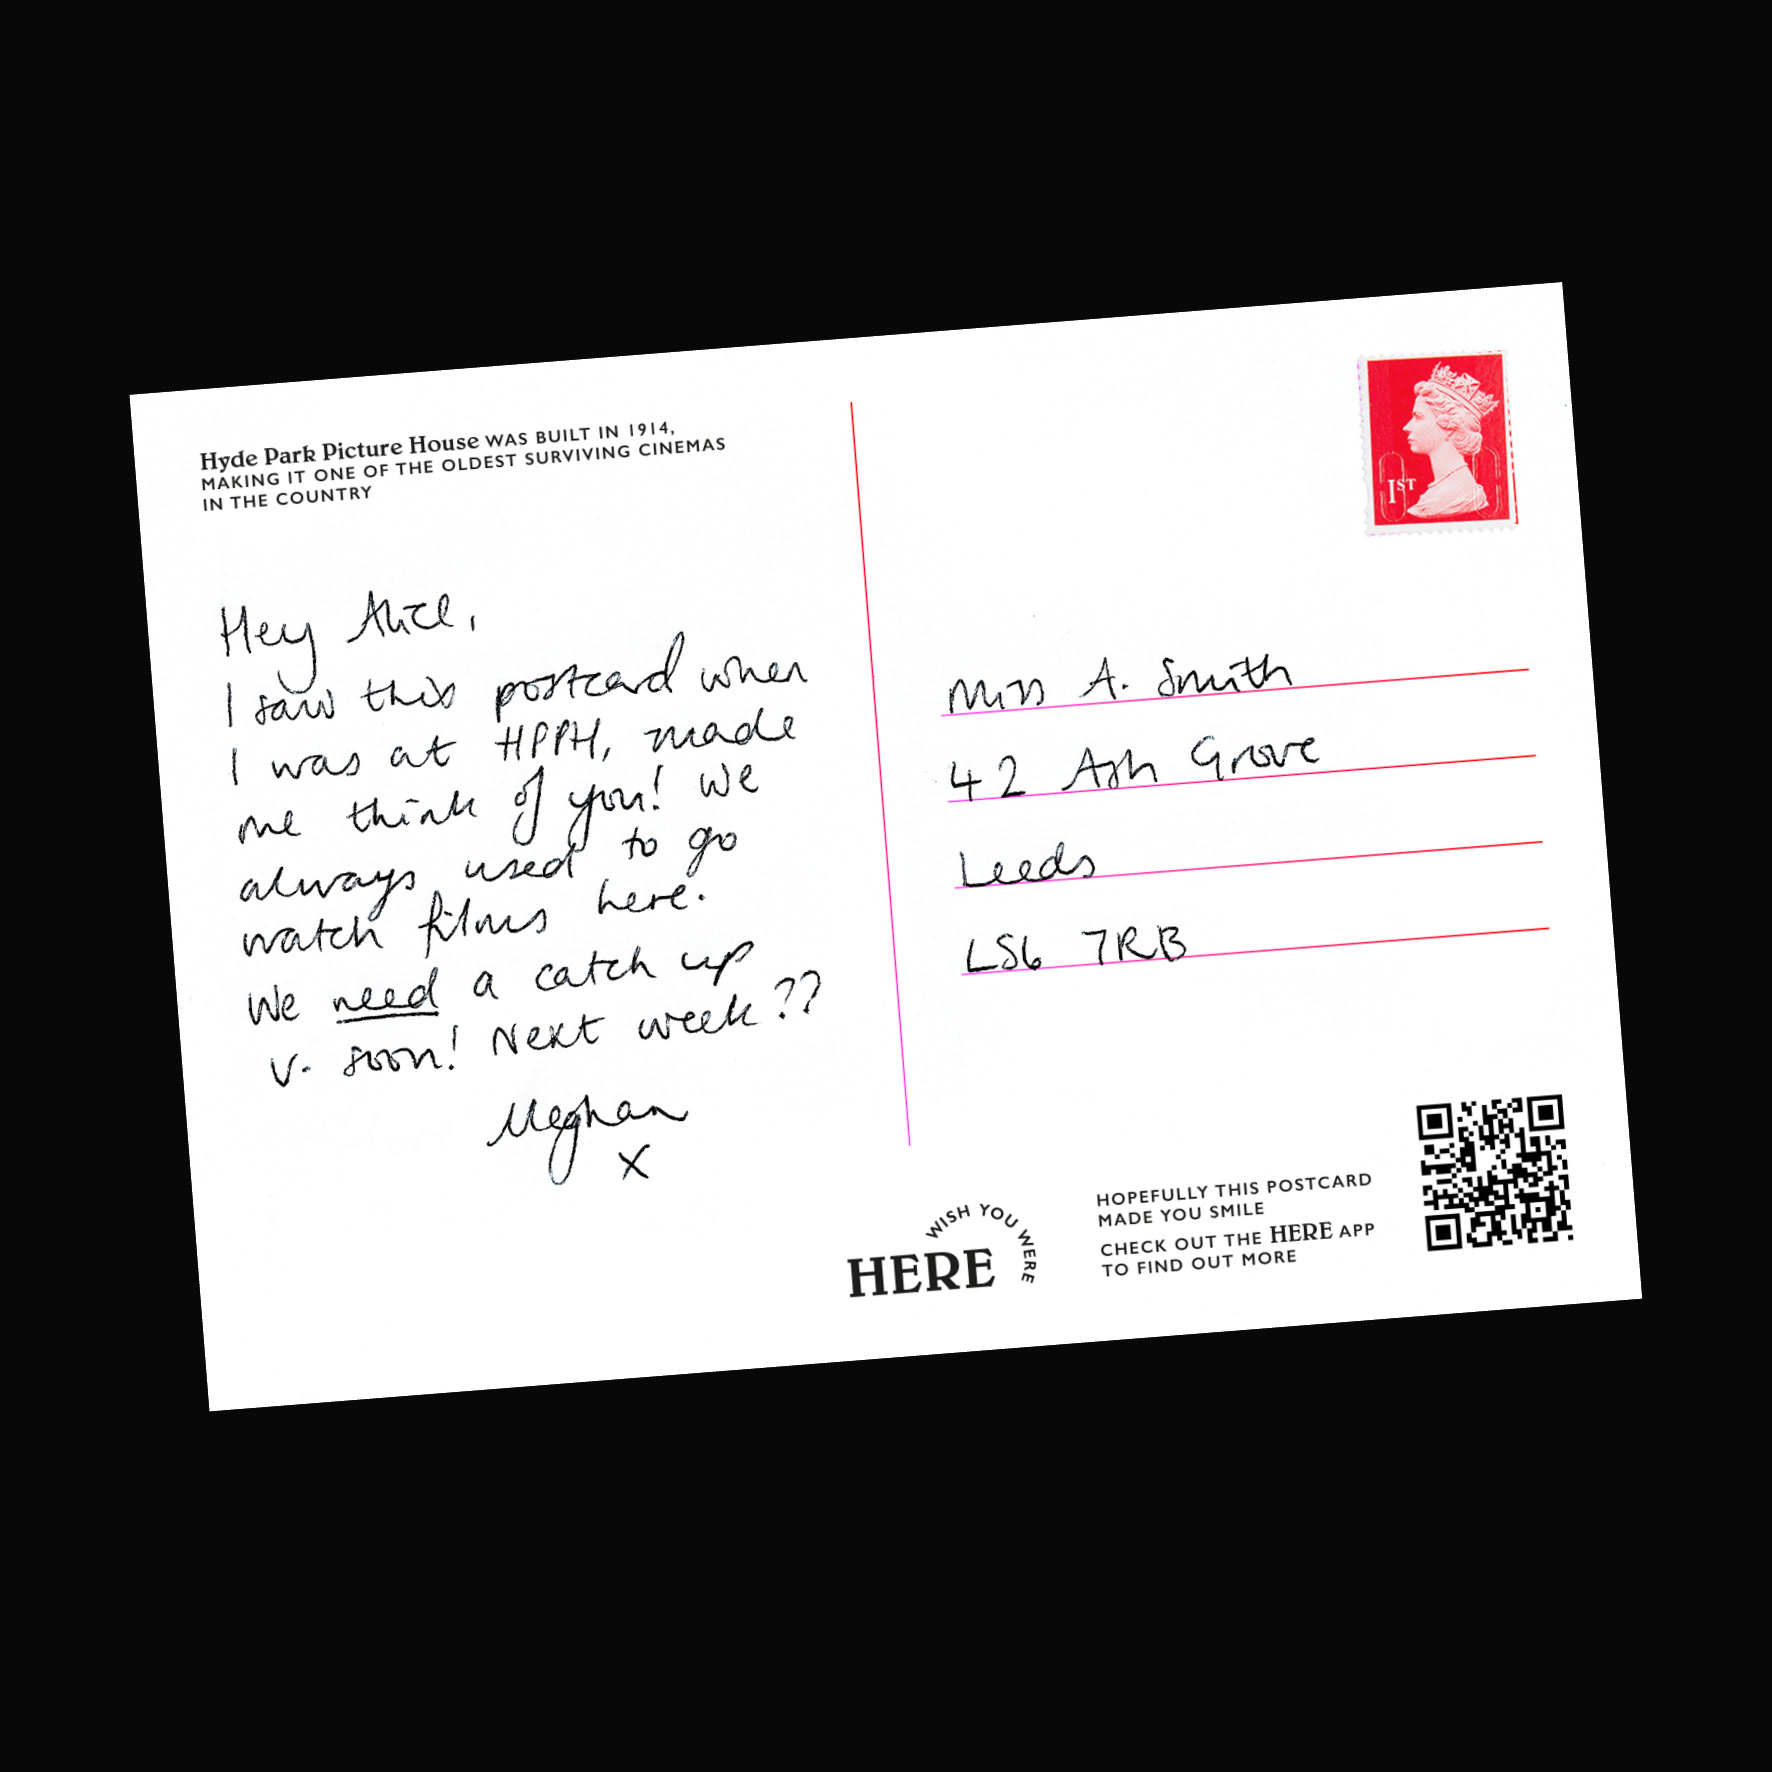 Hyde Park Picture House WAS BUILT IN 1914,
MAKING IT ONE OF THE OLDEST SURVIVING CINEMAS
IN THE COUNTRY
Hey Alice,
I saw this postcard when
I was at HPPH, made
me think of you! We
always used to go
watch films here.
We need a catch up
v. soon! Next week??
Meghan
x
1ST
Miss A. Smith
42 Ash Grove
Leeds
LS6 7RB
WISH YOU WERE
HERE
HOPEFULLY THIS POSTCARD
MADE YOU SMILE
CHECK OUT THE HERE APP
TO FIND OUT MORE